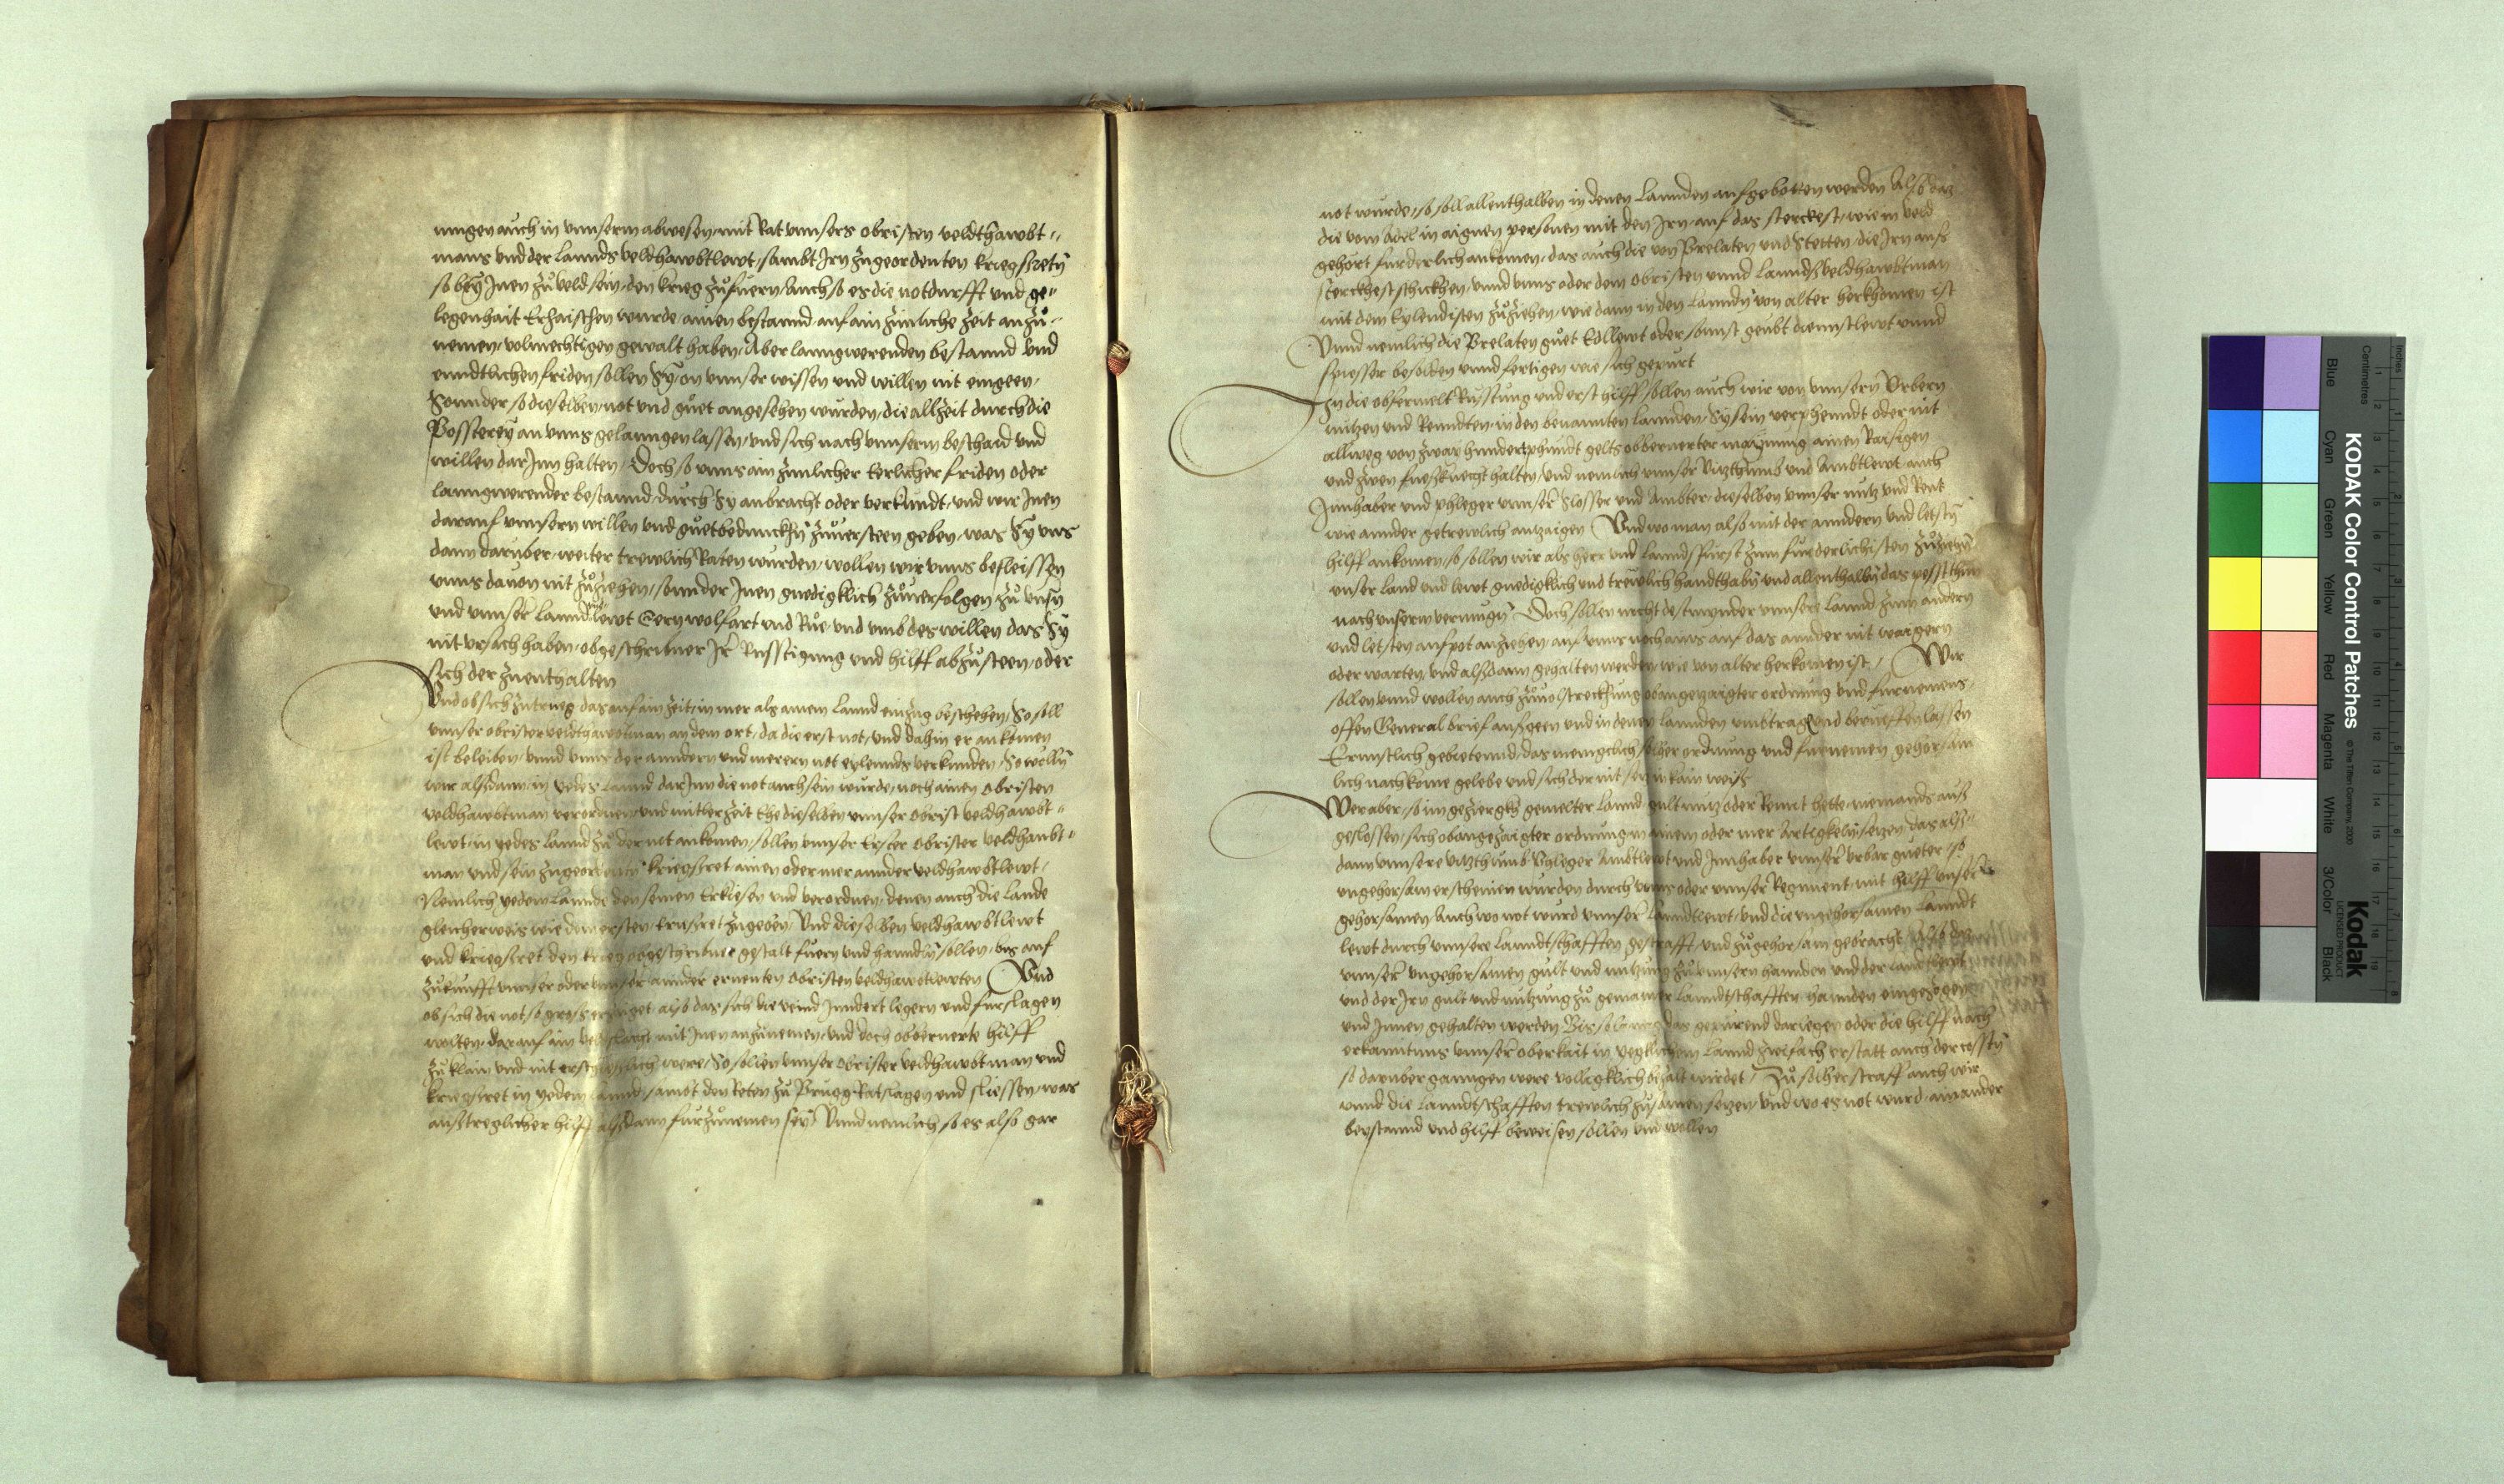 nngen auch in vnnserm abwesen, mit Rat vnnsers obristen veldthawbt-
mans vnd der Lannds veldhawbtlewt, sambt Irn zugeordenten kriegsretn
so bey Inen zu veld sein, den krieg zufuern, Auch so es die notdurfft vnd ge-
legenhait Erhaischen wurde, ainen bestannd auf ain zimliche zeit anzu-
nemen, volmechtigen gewalt haben, Aber lanngwerenden bestannd vnd
enndtlichen friden sollen Sy, on vnnser wissen vnd willen nit eingeen,
Sonnder so dieselben, not vnd guet angesehen wurden, die allzeit durch die
Possterey an vnns gelanngen lassen, vnd sich nach vnnserm beschaid vnd
willen darInn halten, Doch so vnns ain zimlicher Eerlicher friden oder
lanngwerender bestannd, durch Sy anbracht oder verkundt, vnd wir Inen
darauf vnnsern willen vnd guetbedunckhn zuuersteen geben, was Sy vns
dann daruber, weiter trewlich Raten wurden, wollen wir vnns befleissen
vnns dauon nit zuziehen, sonnder Inen gnedigklich zuuerfolgen zu vnsern
und vnnser Lannd vnd lewt Eern wolfart vnd Rue, vnd vmb des willen das Sy
nit vrsach haben, obgeschribner Ir Russtigung vnd hilff abzusteen, oder
sich der zuenthalten
Vnd ob sich zutrueg das auf ain zeit, in mer als ainem Lannd einzug beschehen, So soll
vnnser obrister veldthawbtman an dem ort, da die erst not, vnd dahin er ankomen
ist beleiben, vnnd vnns der anndern vnd merern not eylennds verkunden, So welln
wir alsdann, in yedes Lannd darInn die not auch sein wurde, noch ainen obristen
veldhawbtman verordnen, vnd mitler zeit Ehe dieselben vnnser obrist veldhawbt-
lewt, in yedes Lannd zu der not ankomen, sollen vnnser Erster obrister veldhaubt-
man vnd sein zugeordentn kriegsret ainen oder mer annder veldhawbtlewt,
Nemlich yedem Lannde den seinen Erkiesen vnd verordnen, denen auch die Lande
gleicherweis wie dem ersten, kriegsret zugeben, Vnd dieselben veldhawbtlewt
vnd kriegsret den krieg obgeschribner gestalt fuern vnd hanndln sollen, bis auf
zukunfft vnnser oder vnnser annder ernenten obristen veldhawbtlewten Vnd
ob sich die not so gross eraiget also das sich die veind Inndert legern vnd furslagen
wolten, darauf ain veldslacht mit Inen anzunemen, vnd doch obbernerte hilff
zu klain vnd nit erschiesslich were, So sollen vnnser obrister veldhawbtman vnd
kriegsret in yedem Lannd, sambt den Reten zu Prugg Ratslagen vnd sliessen, was
austreglicher hilff alsdann furzunemen sey, Vnnd nemlich so es also gar
not wurde, so soll allenthalben in denen Lannden aufgeboten werden Also das
die vom Adel in aignen personen mit den Irn, auf das sterckest, wie in veld
gehort furderlich ankomen, das auch die von Prelaten vnd Stetten, die Irn aufs
sterckhest schickhen, vnnd vnns oder dem obristen vnnd Lanndsveldhawbtman
mit dem Eylendisten zuziehen, wie dann in den Lanndn von alter herkhomen ist
Vnnd nemlich die Prelaten guet Edllewt oder sonst geubt dienstlewt vnnd
spiesser besolden vnnd fertigen wie sich gepurt
In die obsermelt Russtung vnd erst hilff sollen auch wir von vnnsern Vrbern
nutzen vnd Renndten, in den benannten Lannden, Sy sein verphenndt oder nit
allweg von zway hundert phundt gelts obbernerter maynung ainen Raisigen
vnd zwen fuesknecht halten, vnd nemlich vnnser Vitzthumb vnd Ambtlewt auch
Innhaber vnd phleger vnnser Slosser vnd Ambter, dieselben vnnser nutz vnd Rent
wie annder getrewlich antzaigen Vnd wo man also mit der anndern vnd letstn
hilff ankomen, so sollen wir als herr vnd Lanndsfurst zum furderlichisten zuziehn
vnser Land vnd lewt gnedigklich vnd trewlich handthabn vnd allenthalbn das pesst thun
nach vnserm vermugn Doch sollen nicht destmynder vnnsere Lannd zum andern
vnd letsten aufpot anziehen, auf vnns noch ains auf das annder nit waigern
oder warten, vnd alsdann gehalten werden, wie von alter herkomen ist, Wir
sollen vnnd wollen auch zuuolstreckung obangezaigter ordnung vnd furnemens,
offen General brief ausgeen vnd in denen Lannden vmbtragen vnd berueffen lassen
Ernnstlich gebietennd, das menigclich, solher ordnung vnd furnemen gehorsam-
lich nachkome gelebe vnd sich der nit setz in kain weiss
Wer aber, so im gezierckh gemelter Lannd gult nutz oder Rennt hette, niemands aus-
geslossen, sich obangezaigter ordnung in ainem oder mer Artigkeln, setzen, das als-
dann vnnsere vitzthumb Phleger Ambtlewt vnd Innhaber vnnser vrbar gueter so
vngehorsam erscheinen wurden durch vnns oder vnnser Regiment, mit hilff vnser
gehorsamen, Auch wo not wurd vnnser Lanndtlewt, vnd die vngehorsamen Lanndt
lewt durch vnnsere Lanndtschafften gestrafft, vnd zu gehorsam gebracht, Also das
vnnser vngehorsamen gult vnd nutzung zu vnnsern hannden vnd der Landtlewt
vnd der Irn gult vnd nutzung zu gemainer Lanndtschafften hannden eingezogen
vnd Innen gehalten werden Bis so lanng das gepurend dargegen oder die hilff nach
erkanntnus vnnser oberkait in yegklichem Lannd zwifach erstatt auch der cosstn
so daruber ganngen were volligklich bezalt wirdet, Zu solher straff auch wir
vnnd die Lanndtschafften trewlich zusamen setzen, vnd wo es not wurd, ainander
beystannd vnd hilff beweisen sollen vnd wollen
KODAK Color Control Patches
© The Tiffen Company, 2000
Kodak
LICENSED PRODUCT
Centimetres
Inches
Blue
Cyan
Green
Yellow
Red
Magenta
White
3/Color
Black